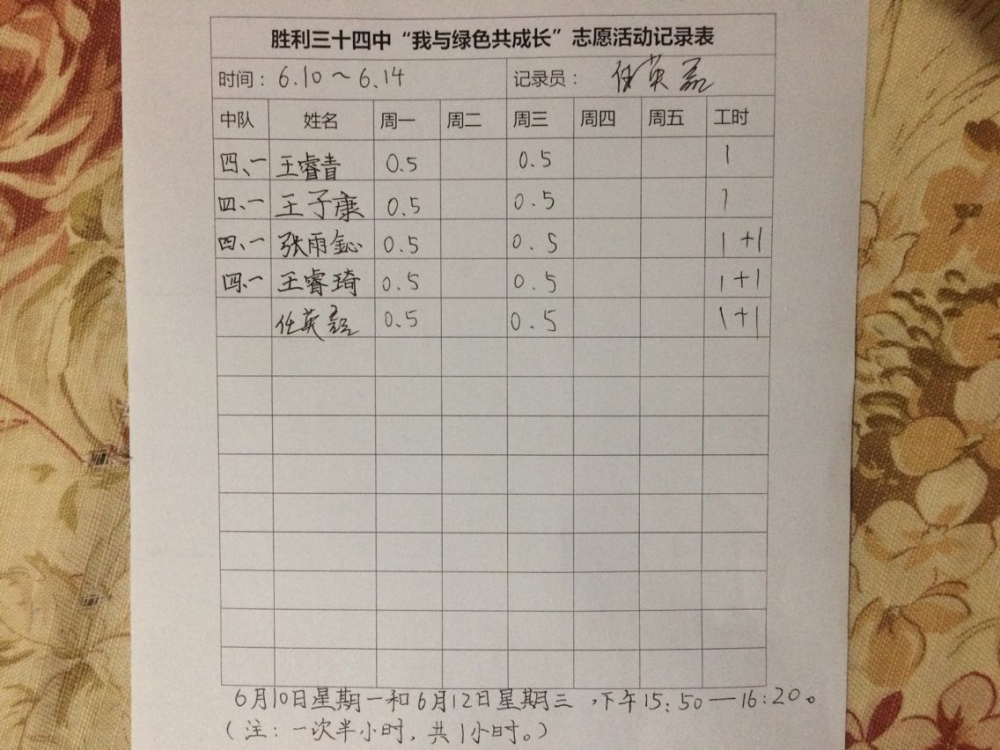 胜利三十四中“我与绿色共成长”志愿活动记录表
时间：6.10～6.14 记录员： 任英磊
中队 姓名 周一 周二 周三 周四 周五 工时
四、一 王睿青 0.5 0.5 1
四、一 王子康 0.5 0.5 1
四、一 张雨鈊 0.5 0.5 1+1
四、一 王睿琦 0.5 0.5 1+1
任英磊 0.5 0.5 1+1
6月10日星期一和6月12日星期三，下午15:50—16:20。
（注：一次半小时，共1小时。）